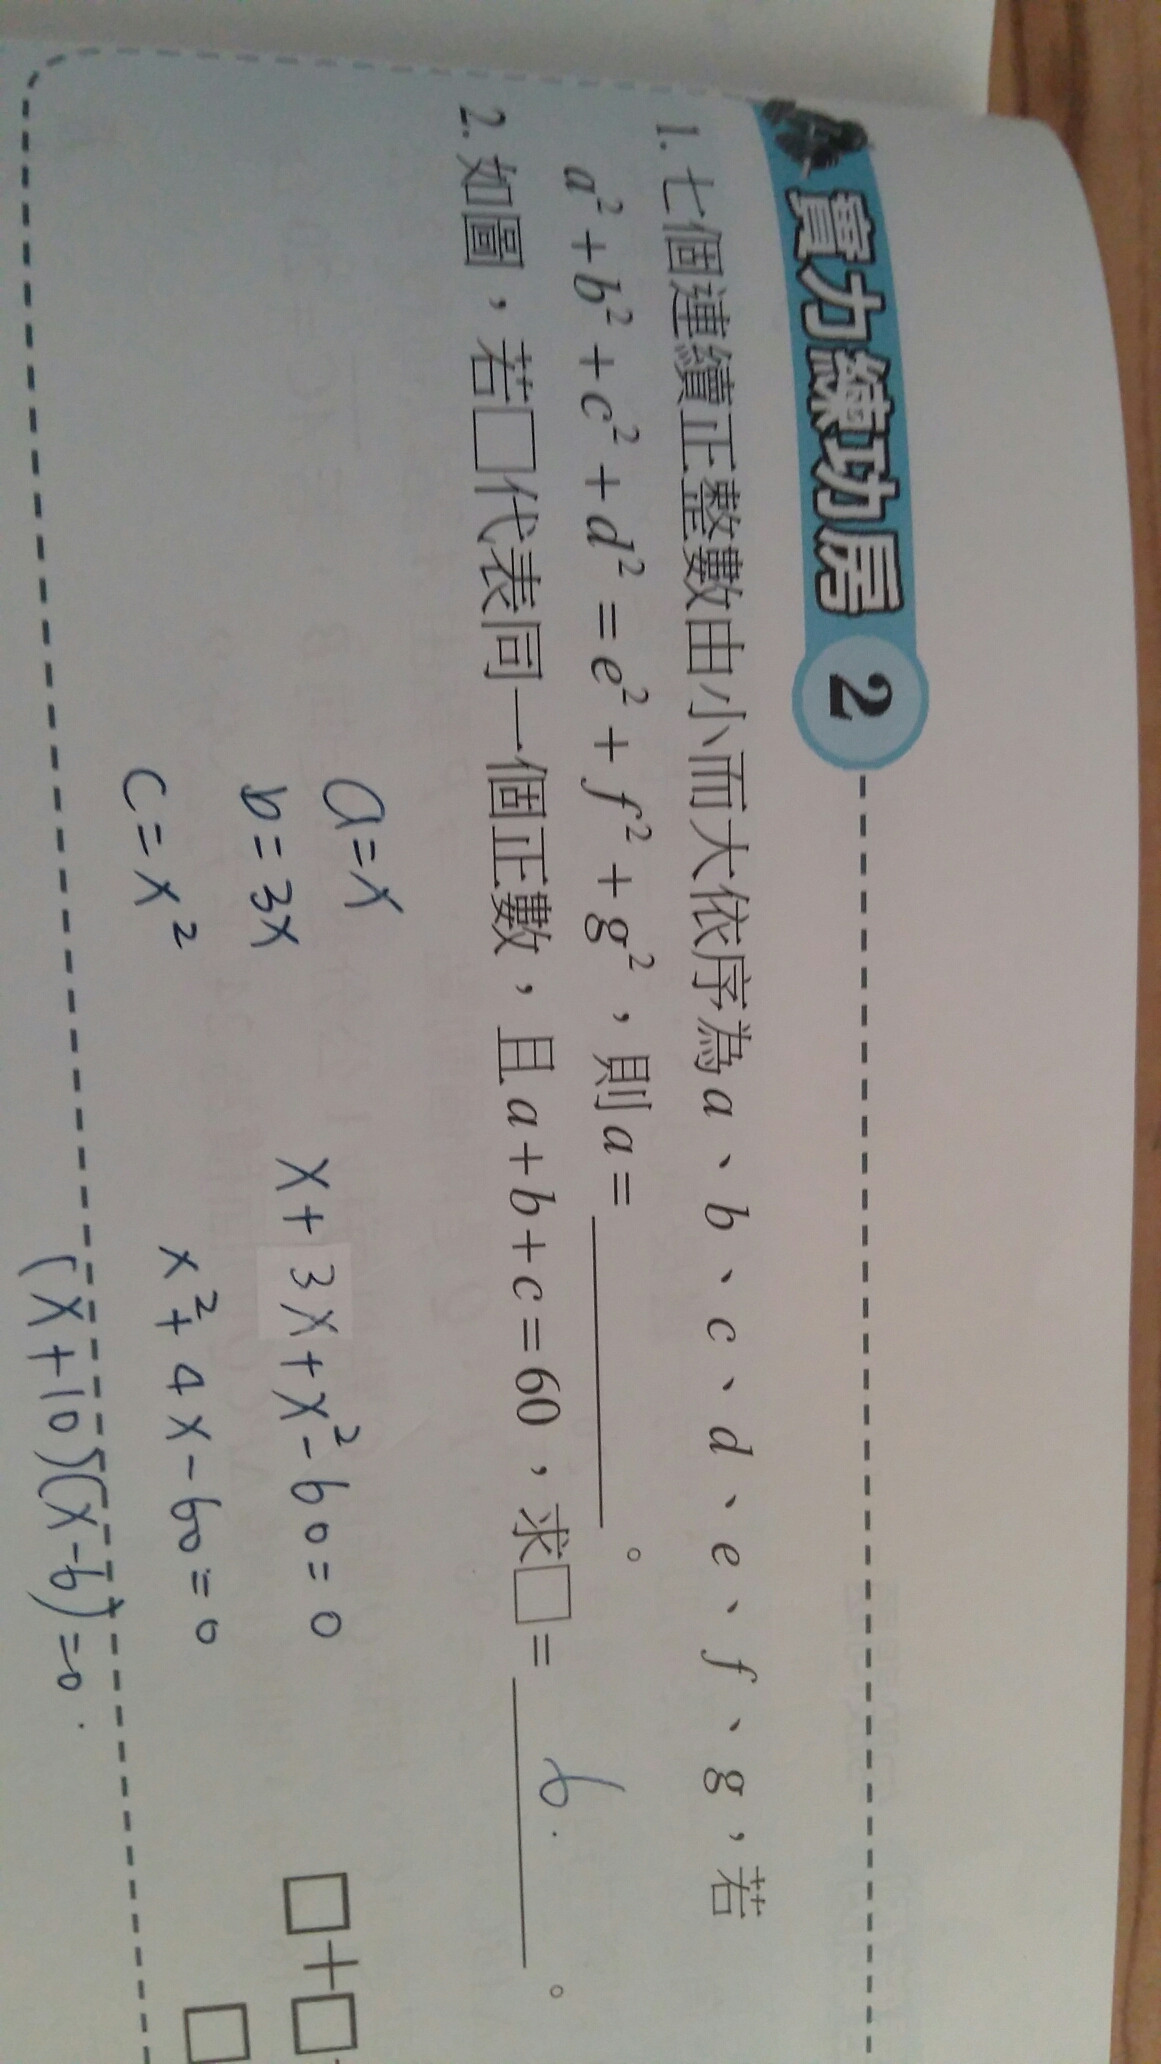 實力練功房 2
1. 七個連續正整數由小而大依序為a、b、c、d、e、f、g,若
a²+b²+c²+d²=e²+f²+g²,則a=______。
2. 如圖,若□代表同一個正數,且a+b+c=60,求□=6.。
a=x
b=3x
c=x²
x+3x+x²-60=0
x²+4x-60=0
(x+10)(x-6)=0.
□+□
□